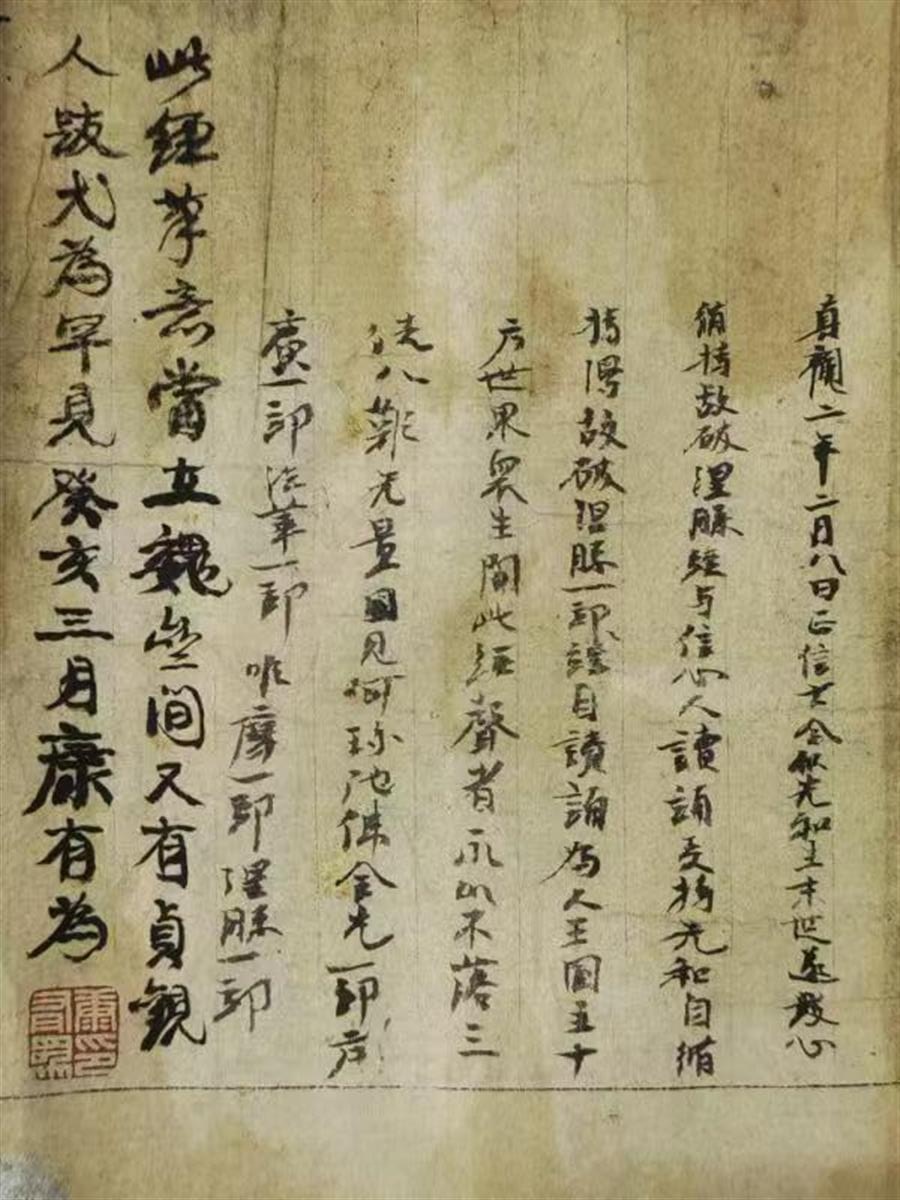 真觀二年二月八日正信士令狐光和土末世遂發心
脩持故破涅槃經与信心人讀誦受持光和自脩
持得故破涅槃一部自讀誦為人王國主十
方世界衆生聞此經聲者永以不落三
途八難无量因見阿弥陀佛金光一部方
廣一部法華一部唯摩一部涅槃一部
此經筆意當在魏齊間又有貞觀
人跋尤為罕見癸亥三月康有為
康有為印